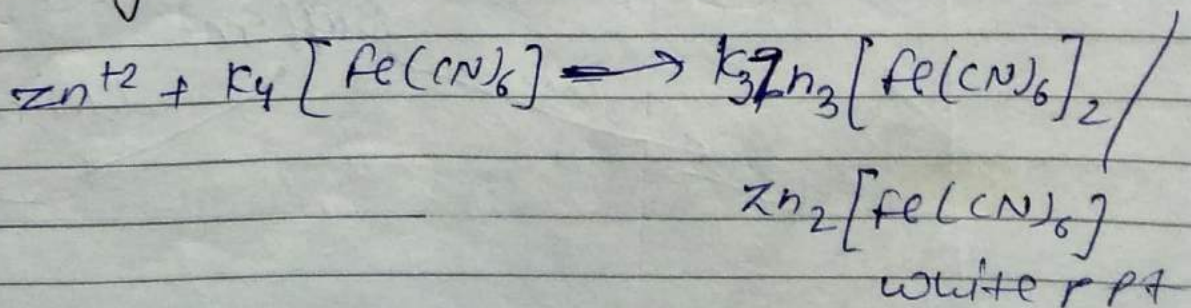 Zn⁺² + K₄ [Fe(CN)₆] → K₃Zn₃[Fe(CN)₆]₂ /
Zn₂[Fe(CN)₆]
white ppt